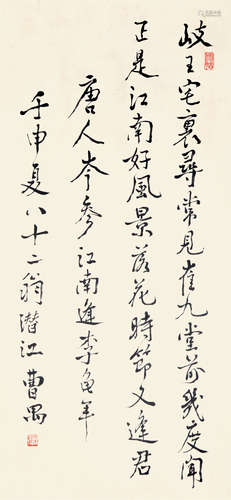 岐王宅裏尋常見崔九堂前幾度聞
正是江南好風景落花時節又逢君
唐人岑參江南逢李龜年
壬申夏八十二翁潜江曹禺